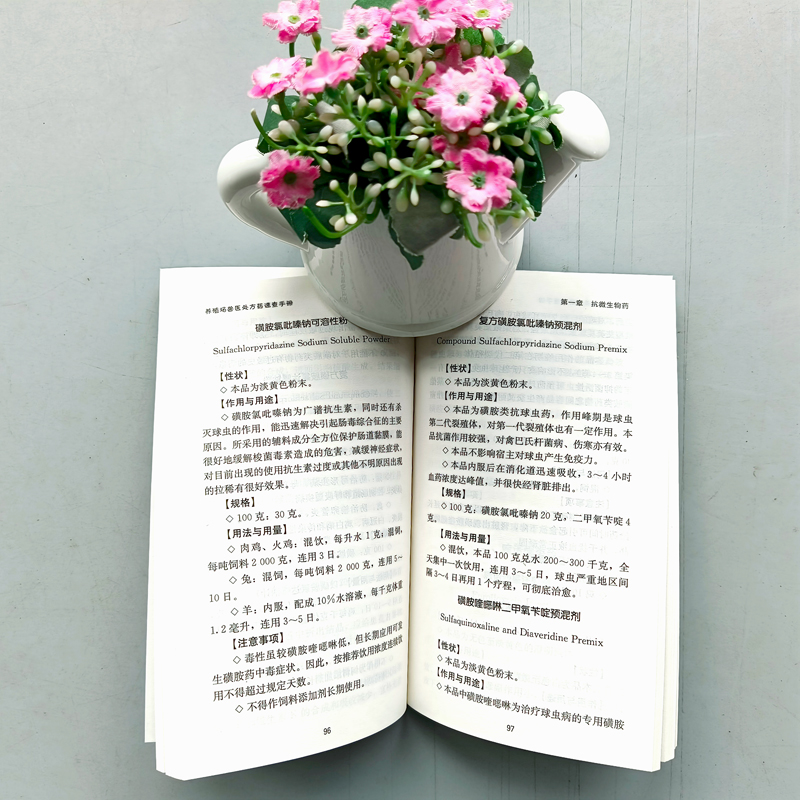 养殖场兽医处方药速查手册
磺胺氯吡嗪钠可溶性粉
Sulfachlorpyridazine Sodium Soluble Powder
【性状】
◇ 本品为淡黄色粉末。
【作用与用途】
◇ 磺胺氯吡嗪钠为广谱抗生素，同时还有杀
灭球虫的作用，能迅速解决引起肠毒综合征的主要
原因。所采用的辅料成分全方位保护肠道黏膜，能
很好地缓解梭菌毒素造成的危害，减缓神经症状，
对目前出现的使用抗生素过度或其他不明原因出现
的拉稀有很好效果。
【规格】
◇ 100 克；30 克。
【用法与用量】
◇ 肉鸡、火鸡：混饮，每升水 1 克；混饲，
每吨饲料 2 000 克，连用 3 日。
◇ 兔：混饲，每吨饲料 2 000 克，连用 5～
10 日。
◇ 羊：内服，配成 10％水溶液，每千克体重
1.2 毫升，连用 3～5 日。
【注意事项】
◇ 毒性虽较磺胺喹噁啉低，但长期应用可发
生磺胺药中毒症状。因此，按推荐饮用浓度连续饮
用不得超过规定天数。
◇ 不得作饲料添加剂长期使用。
96
第一章 抗微生物药
复方磺胺氯吡嗪钠预混剂
Compound Sulfachlorpyridazine Sodium Premix
【性状】
◇ 本品为淡黄色粉末。
【作用与用途】
◇ 本品为磺胺类抗球虫药，作用峰期是球虫
第二代裂殖体，对第一代裂殖体也有一定作用。本
品抗菌作用较强，对禽巴氏杆菌病、伤寒亦有效。
◇ 本品不影响宿主对球虫产生免疫力。
◇ 本品内服后在消化道迅速吸收，3～4 小时
血药浓度达峰值，并很快经肾脏排出。
【规格】
◇ 100 克：磺胺氯吡嗪钠 20 克，二甲氧苄啶 4
克。
【用法与用量】
◇ 混饮，本品 100 克兑水 200～300 千克，全
天集中一次饮用，连用 3～5 日，球虫严重地区间
隔 3～4 日再用 1 个疗程，可彻底治愈。
磺胺喹噁啉二甲氧苄啶预混剂
Sulfaquinoxaline and Diaveridine Premix
【性状】
◇ 本品为淡黄色粉末。
【作用与用途】
◇ 本品中磺胺喹噁啉为治疗球虫病的专用磺胺
97